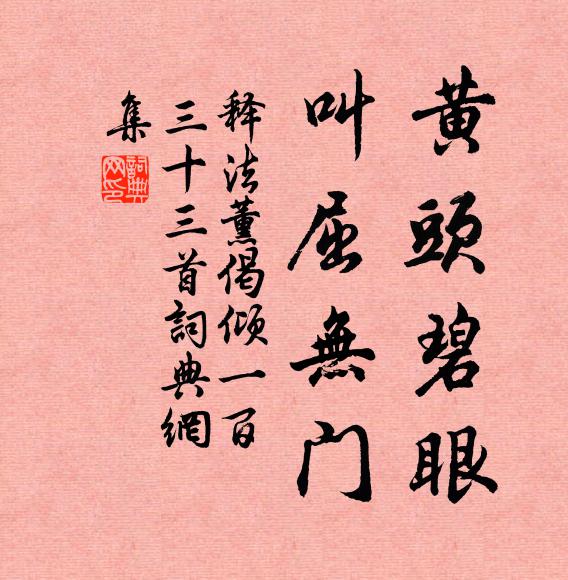 黄頭碧眼
叫屈無门
释法薰偈倾一百
三十三首詞典網
集
詞典網印